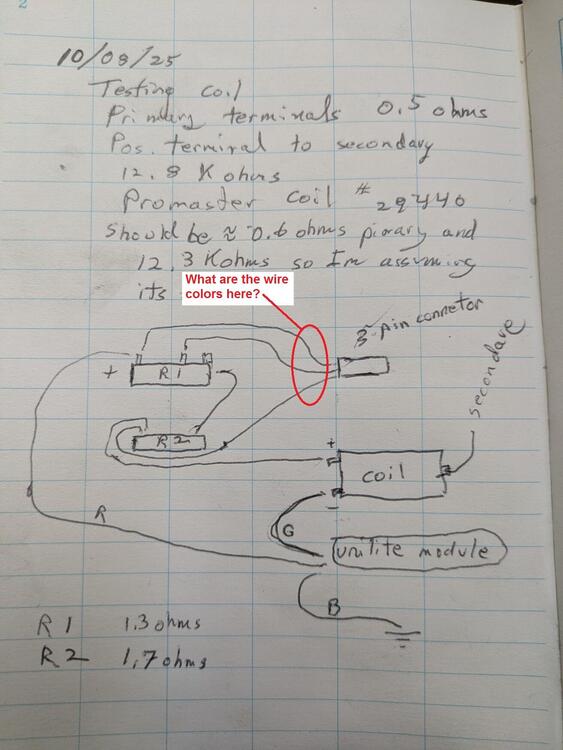 2
10/09/25
Testing coil
Primary terminals 0.5 ohms
Pos. terminal to secondary
12.8 K ohms
Promaster coil # 29440
Should be ≈ 0.6 ohms piorary and
12.3 Kohms so Im assuming
its
What are the wire
colors here?
3-pin connetor
secondare
+ R1
R2
+
coil
-
G
R
unilite module
B
R1 1.3 ohms
R2 1.7 ohms